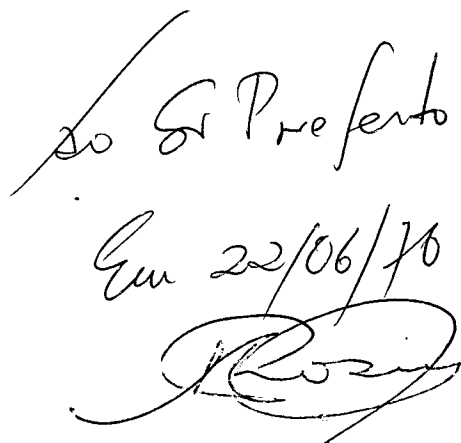 Ao Sr Prefeito
Em 22/06/70